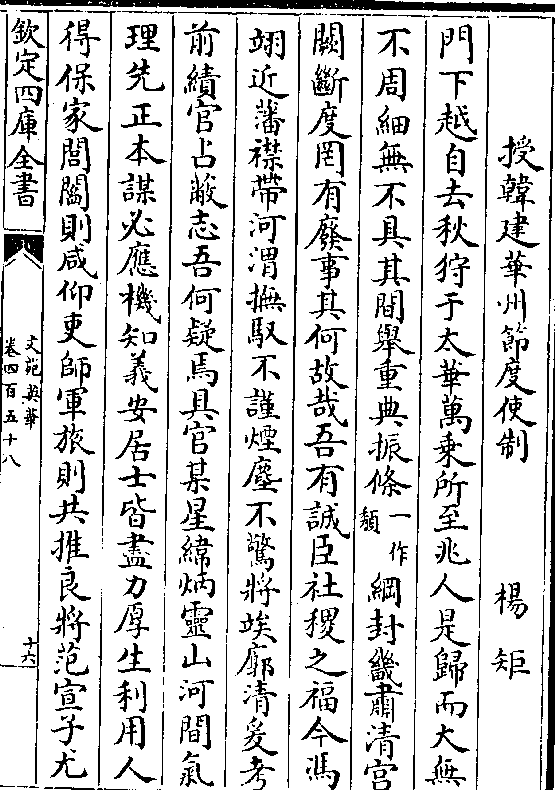 授韓建華州節度使制　楊矩
門下越自去秋狩于太華萬乘所至兆人是歸而大無
不周細無不具其間舉重典振條一作纇綱封畿肅清宮
闕斷度罔有廢事其何故哉吾有誠臣社稷之福今馮
翊近藩襟帶河渭撫馭不謹煙塵不驚將埃廓清爰考
前績官占蔽志吾何疑焉具官某星緯炳靈山河間氣
理先正本謀必應機知義安居士皆盡力厚生利用人
得保家閭閻則咸仰吏師軍旅則共推良將范宣子尤
欽定四庫全書
文苑英華
卷四百五十八
十六